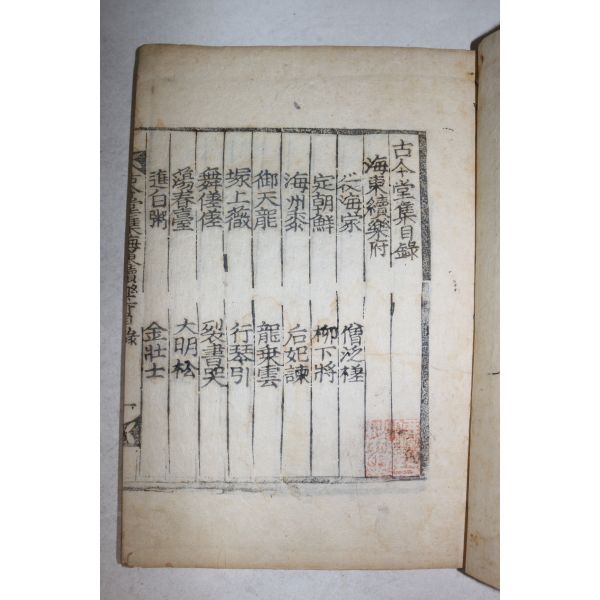 古今堂集目錄
海東續樂府
海 僧泛槎
定朝鮮 柳下將
海州黍 后妃諫
御天龍 龍乘雲
塚上薇 行琴引
舞僊僊 裂書哭
春臺 大明松
進白粥 金壯士
古今堂集海東續樂府目錄 一